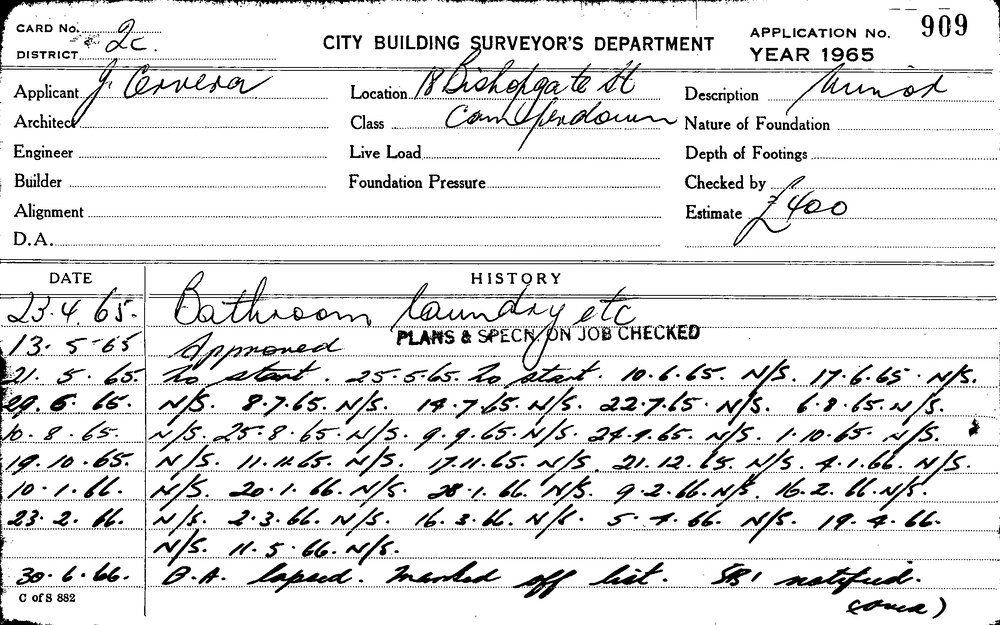 CARD No. 2c.
DISTRICT
CITY BUILDING SURVEYOR'S DEPARTMENT
APPLICATION No. 909
YEAR 1965
Applicant J. Cervera
Location 18 Bishopgate St
Description Minor
Architect
Class Camperdown
Nature of Foundation
Engineer
Live Load
Depth of Footings
Builder
Foundation Pressure
Checked by
Alignment
Estimate £400
D.A.
DATE HISTORY
23.4.65. Bathroom laundry etc
13.5.65 Approved PLANS & SPECN. ON JOB CHECKED
21.5.65. To start. 25.5.65. To start. 10.6.65. N/S. 17.6.65. N/S.
29.6.65. N/S. 8.7.65. N/S. 14.7.65. N/S. 22.7.65. N/S. 6.8.65. N/S.
10.8.65. N/S. 25.8.65. N/S. 9.9.65. N/S. 24.9.65. N/S. 1.10.65. N/S.
19.10.65. N/S. 11.11.65. N/S. 17.11.65. N/S. 21.12.65. N/S. 4.1.66. N/S.
10.1.66. N/S. 20.1.66. N/S. 28.1.66. N/S. 9.2.66. N/S. 16.2.66. N/S.
23.2.66. N/S. 2.3.66. N/S. 16.3.66. N/S. 5.4.66. N/S. 19.4.66.
N/S. 11.5.66. N/S.
30.6.66. B.A. lapsed. Marked off list. notified.
(over)
C of S 882